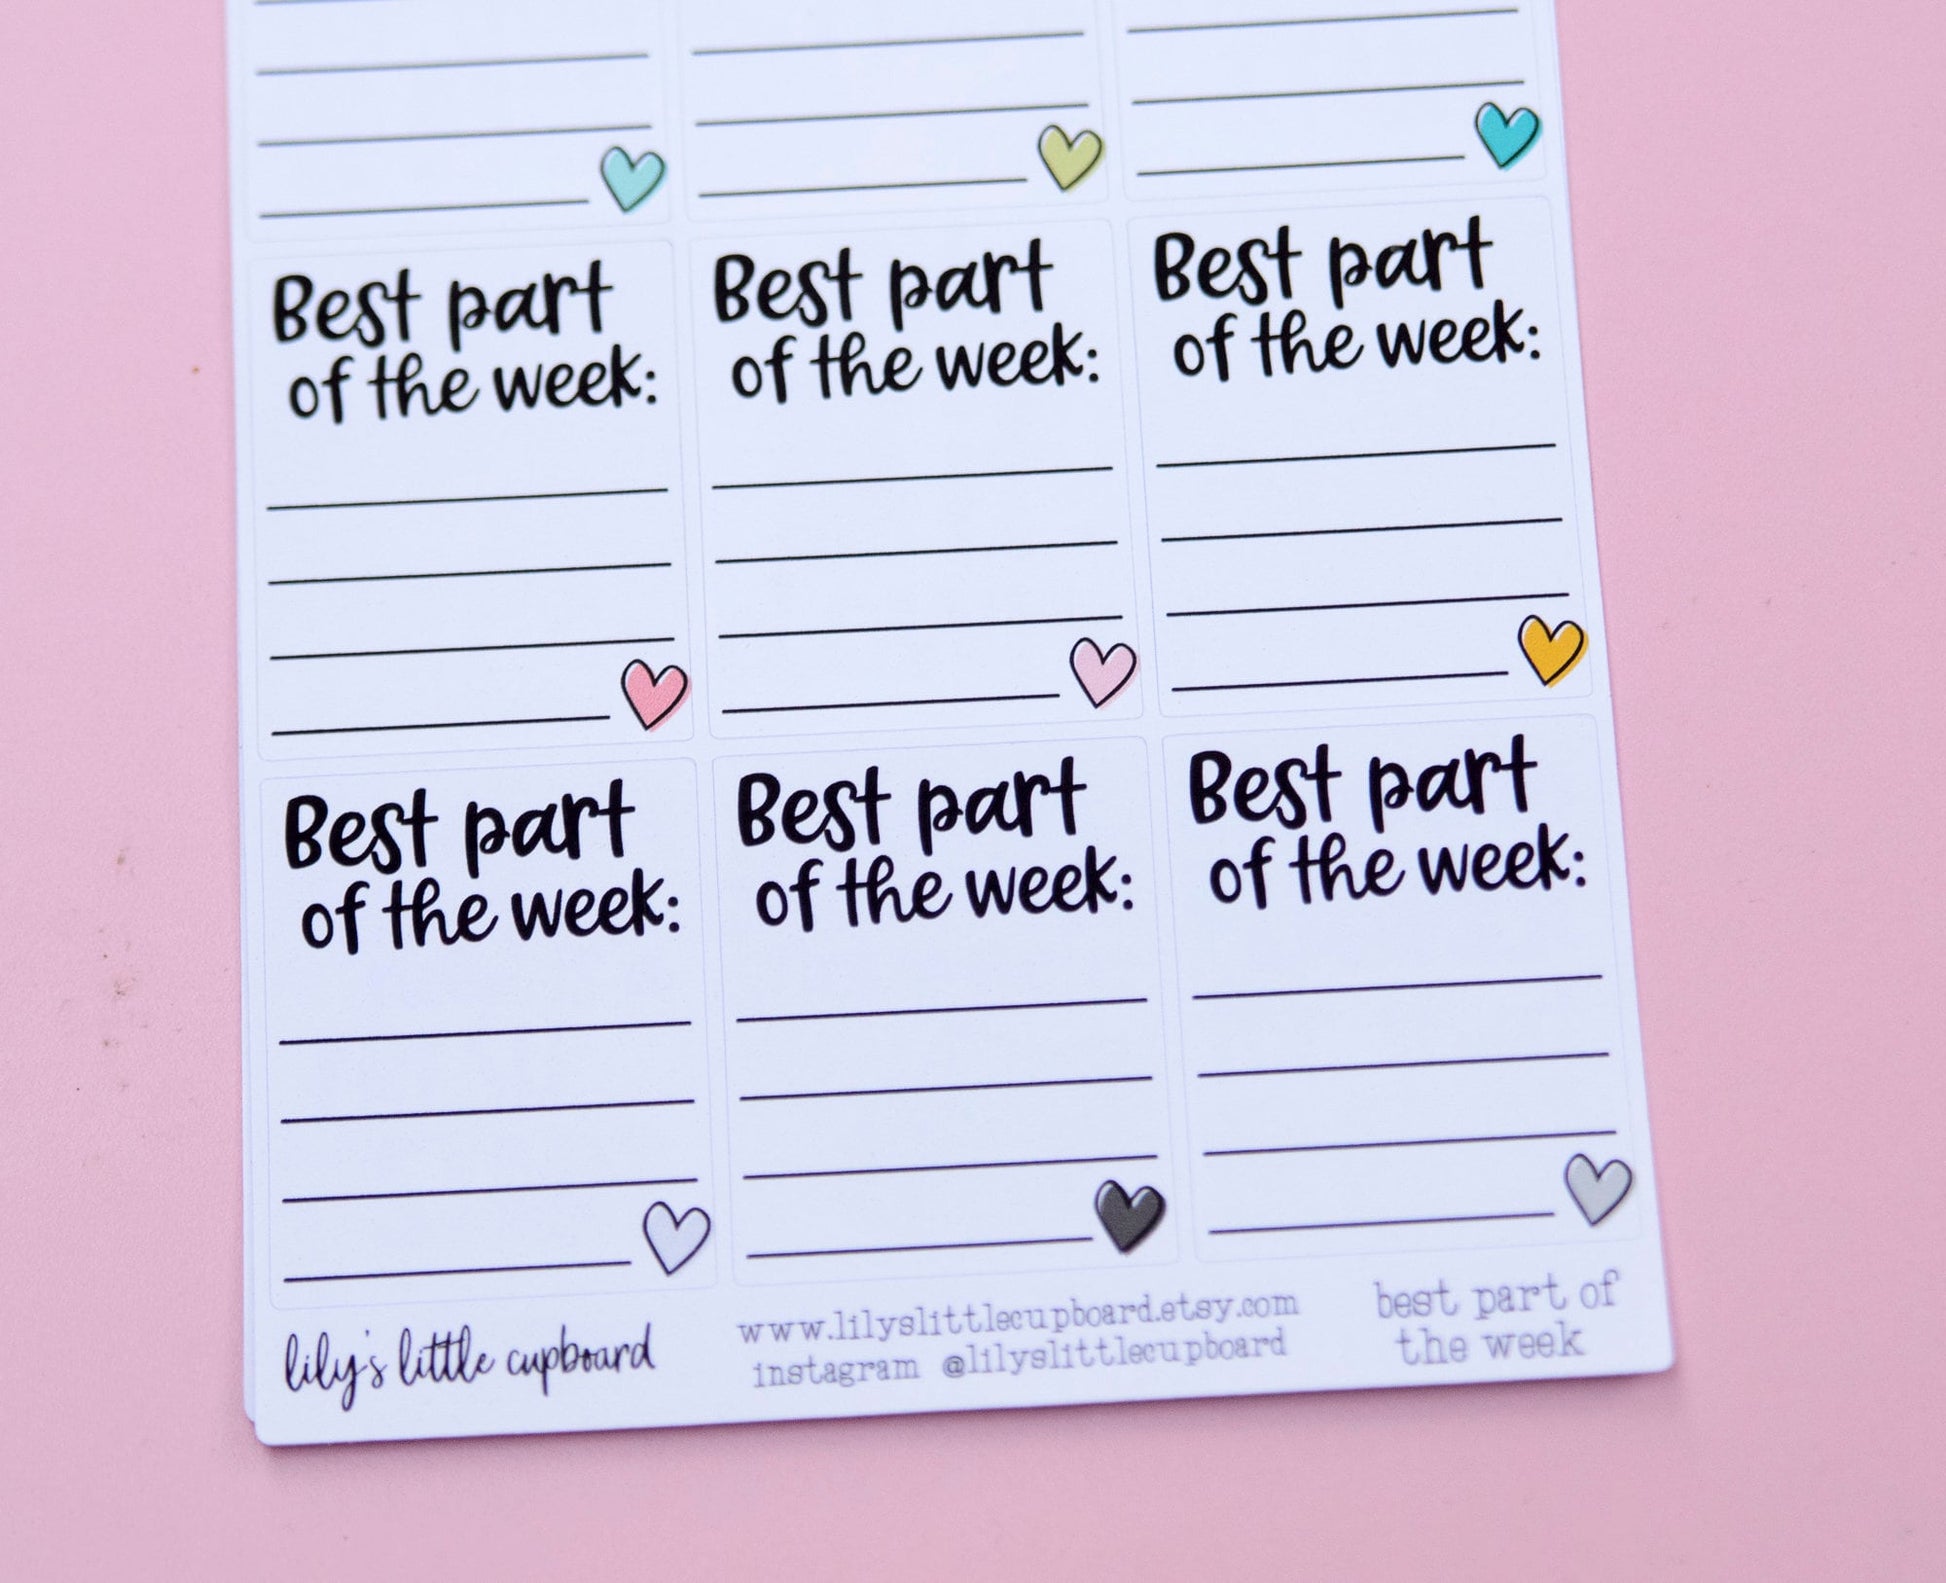 Best part
of the week:
Best part
of the week:
Best part
of the week:
Best part
of the week:
Best part
of the week:
Best part
of the week:
lily's little cupboard
www.lilyslittlecupboard.etsy.com
instagram @lilyslittlecupboard
best part of
the week